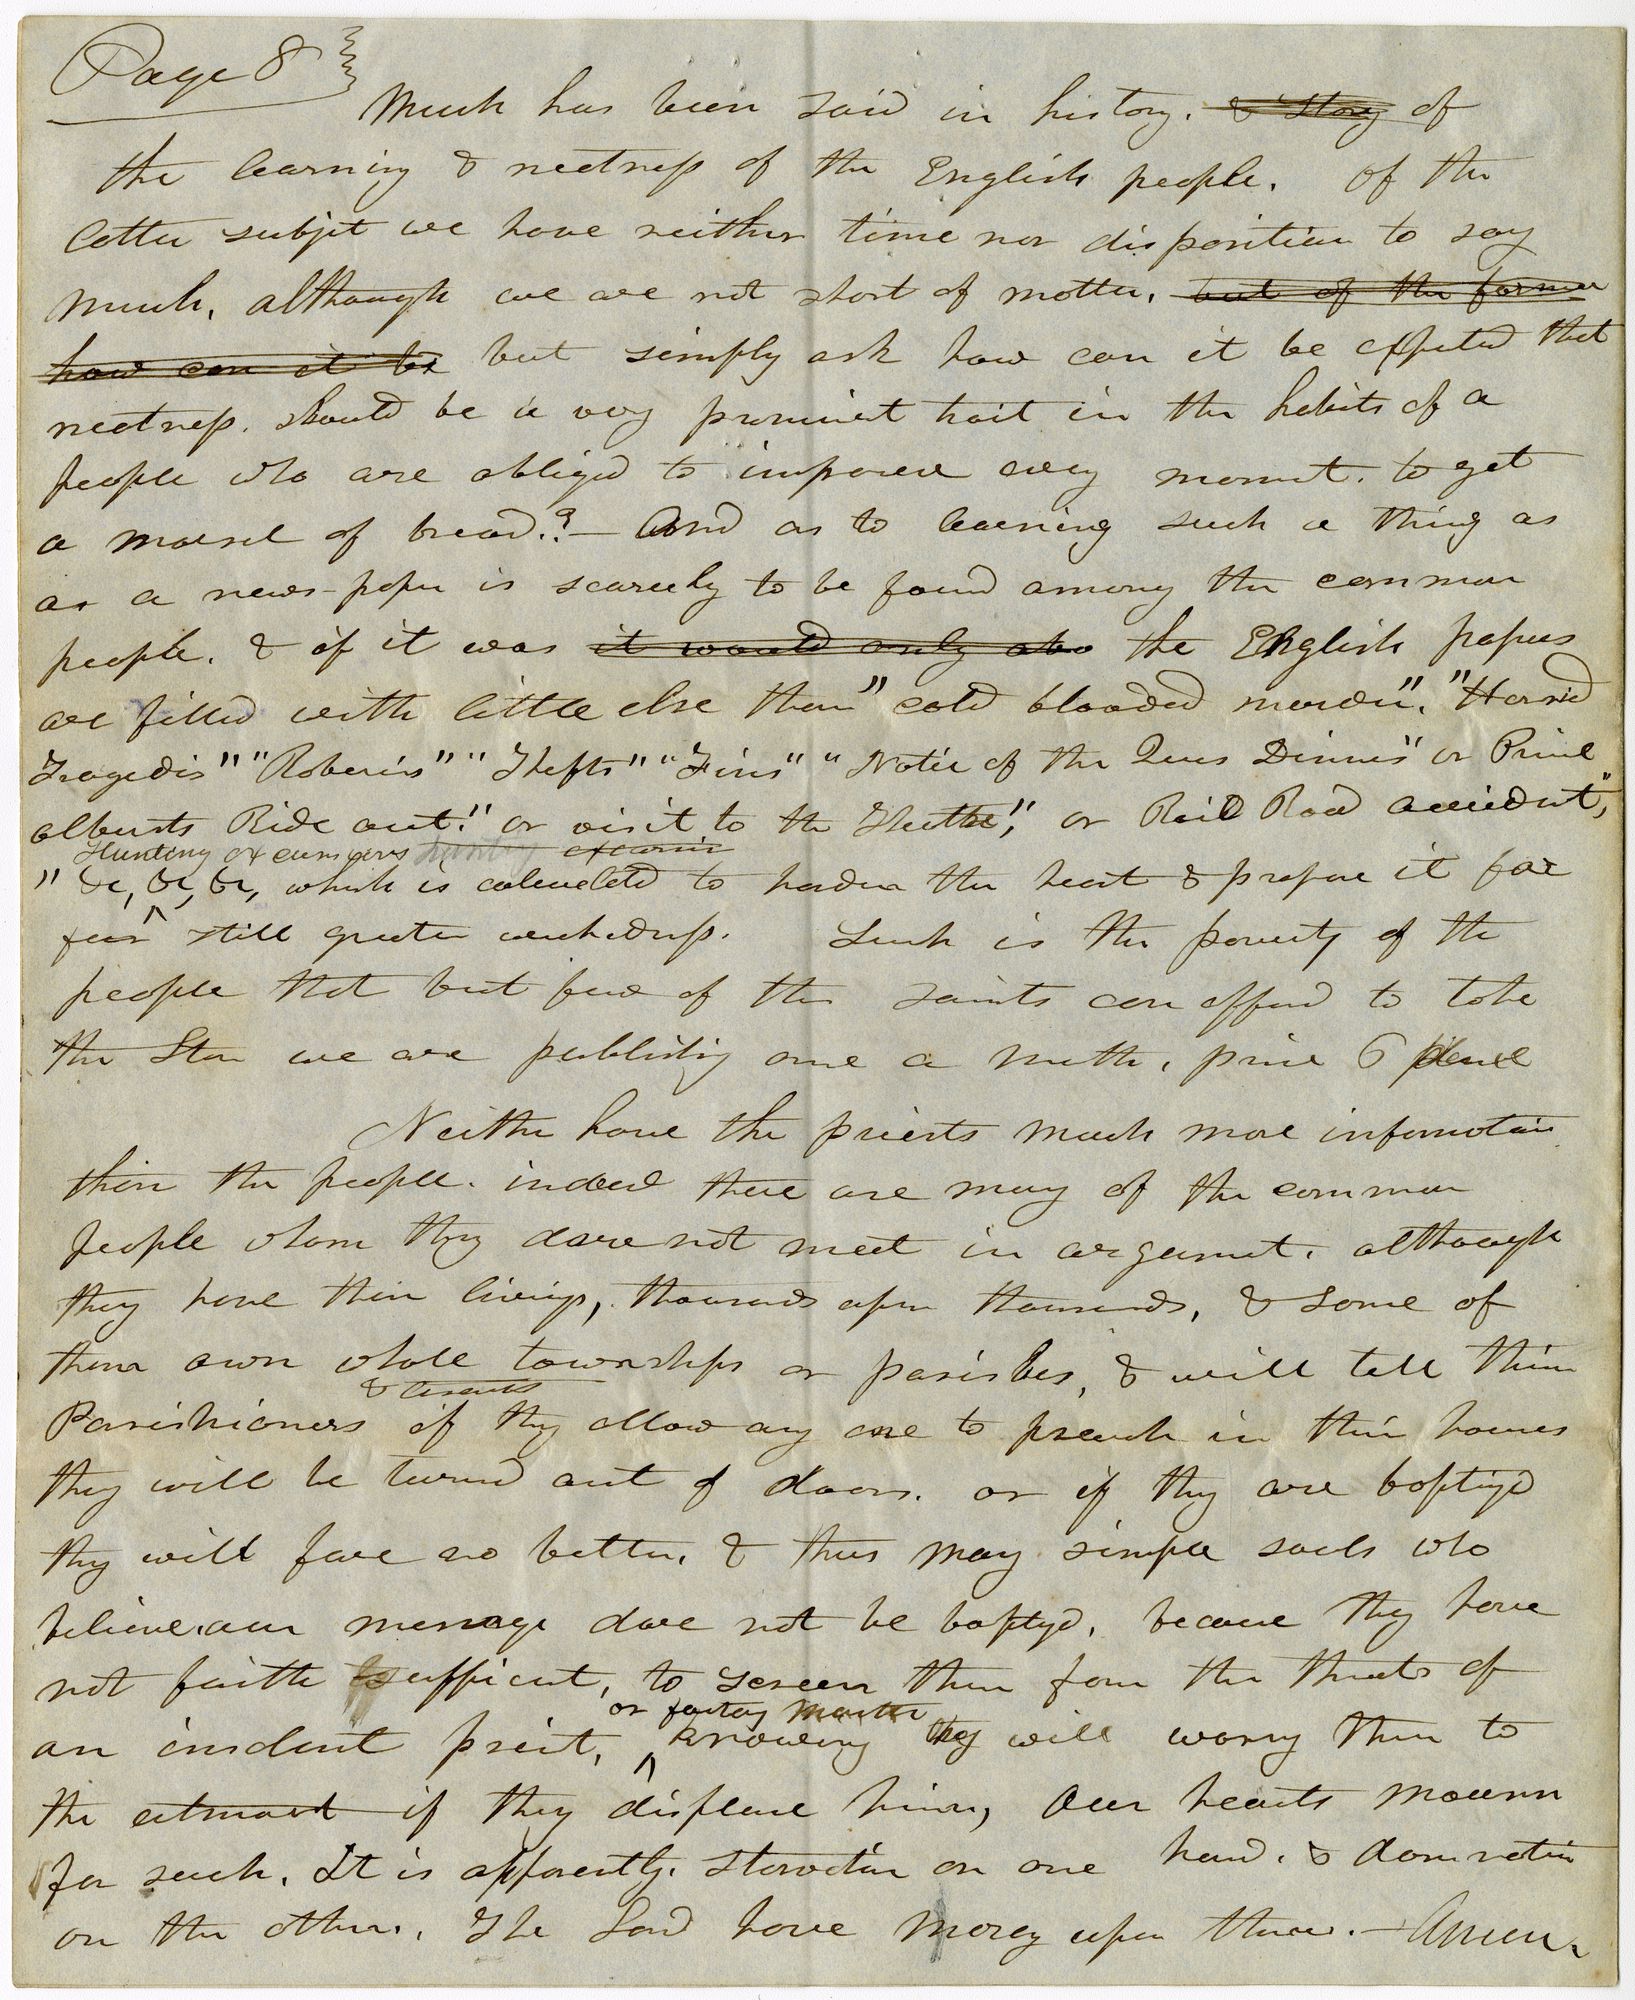 Page 8
Much has been said in history, & story of
the learning & neetness of the English people. of the
latter subjet we have neither time nor disposition to say
much, although we are not short of matter, but of the former
how can it be but simply ask how can it be expeted that
neetness, should be a very prominet trait in the habits of a
people who are obliged to improve every moment, to get
a morsel of bread.? — And as to learning such a thing as
as a news-paper is scarcely to be found among the common
people, & if it was it would only also the English papers
are filled with little else than "cold blooded murders", "Horrid
Tragedies" "Roberies" "Thefts" "Fires" "Notice of the Quens Dinners" or Prince
alburts Ride out!" or visit to the Theatre", or Rail Road accident",
Hunting excursions hunting excursin
" &c, &c, &c, which is calculated to harden the heart & prepare it for
for still greater wickedness. Such is the poverty of the
people that but few of the saints can afford to take
the Star we are publishing once a month, price 6 pence
Neither have the priests much more information
than the people. indeed there are many of the common
people whom they dare not meet in argument, although
they have their livings, thousands upon thousands, & some of
them own whole townships or parishes, & will tell their
& tenants
Parishioners if they allow any one to preach in their houses
they will be turned out of doors. or if they are baptized
they will fare no better, & thus many simple souls who
believe our message dare not be baptized, because they have
not faith sufficient, to screen them from the threats of
or factory Master
an insolent priest, knowing they will worry them to
the utmost if they displease him, Our hearts mourn
for such. It is apparently, starvation on one hand, & damnation
on the other. The Lord have mercy upon them. — Amen.